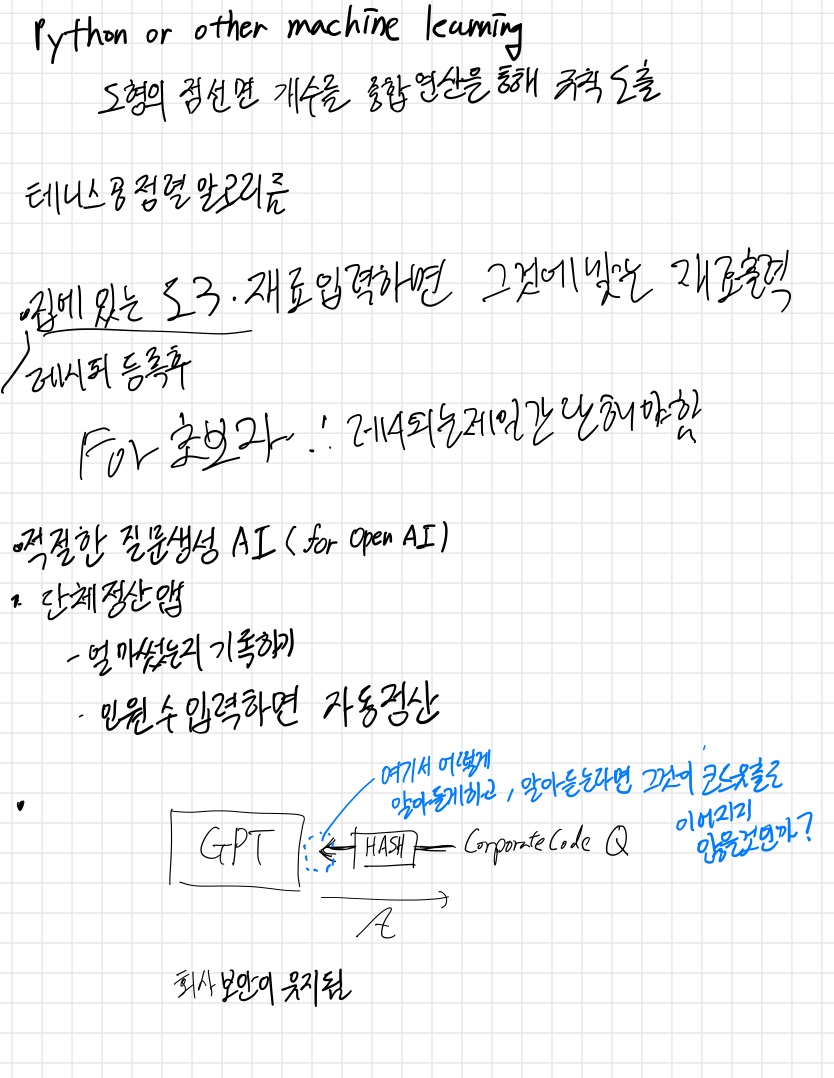 Python or other machine learning
도형의 점선면 개수를 종합연산을 통해 규칙 도출
테니스공정렬알고리즘
•집에 있는 도구·재료입력하면 그것에 맞는 재료출력
레시피 등록후
For 초보자 ∴ 레시피는제일간단해야함
•적절한 질문생성 AI (for Open AI)
• 단체정산앱
- 얼마썼는지 기록하기
- 인원수입력하면 자동정산
여기서 어떻게
알아듣게하고, 알아듣는다면 그것이 코드유출로
이어지지
않을것인가?
•
GPT HASH Corporate Code Q
회사보안이 유지됨